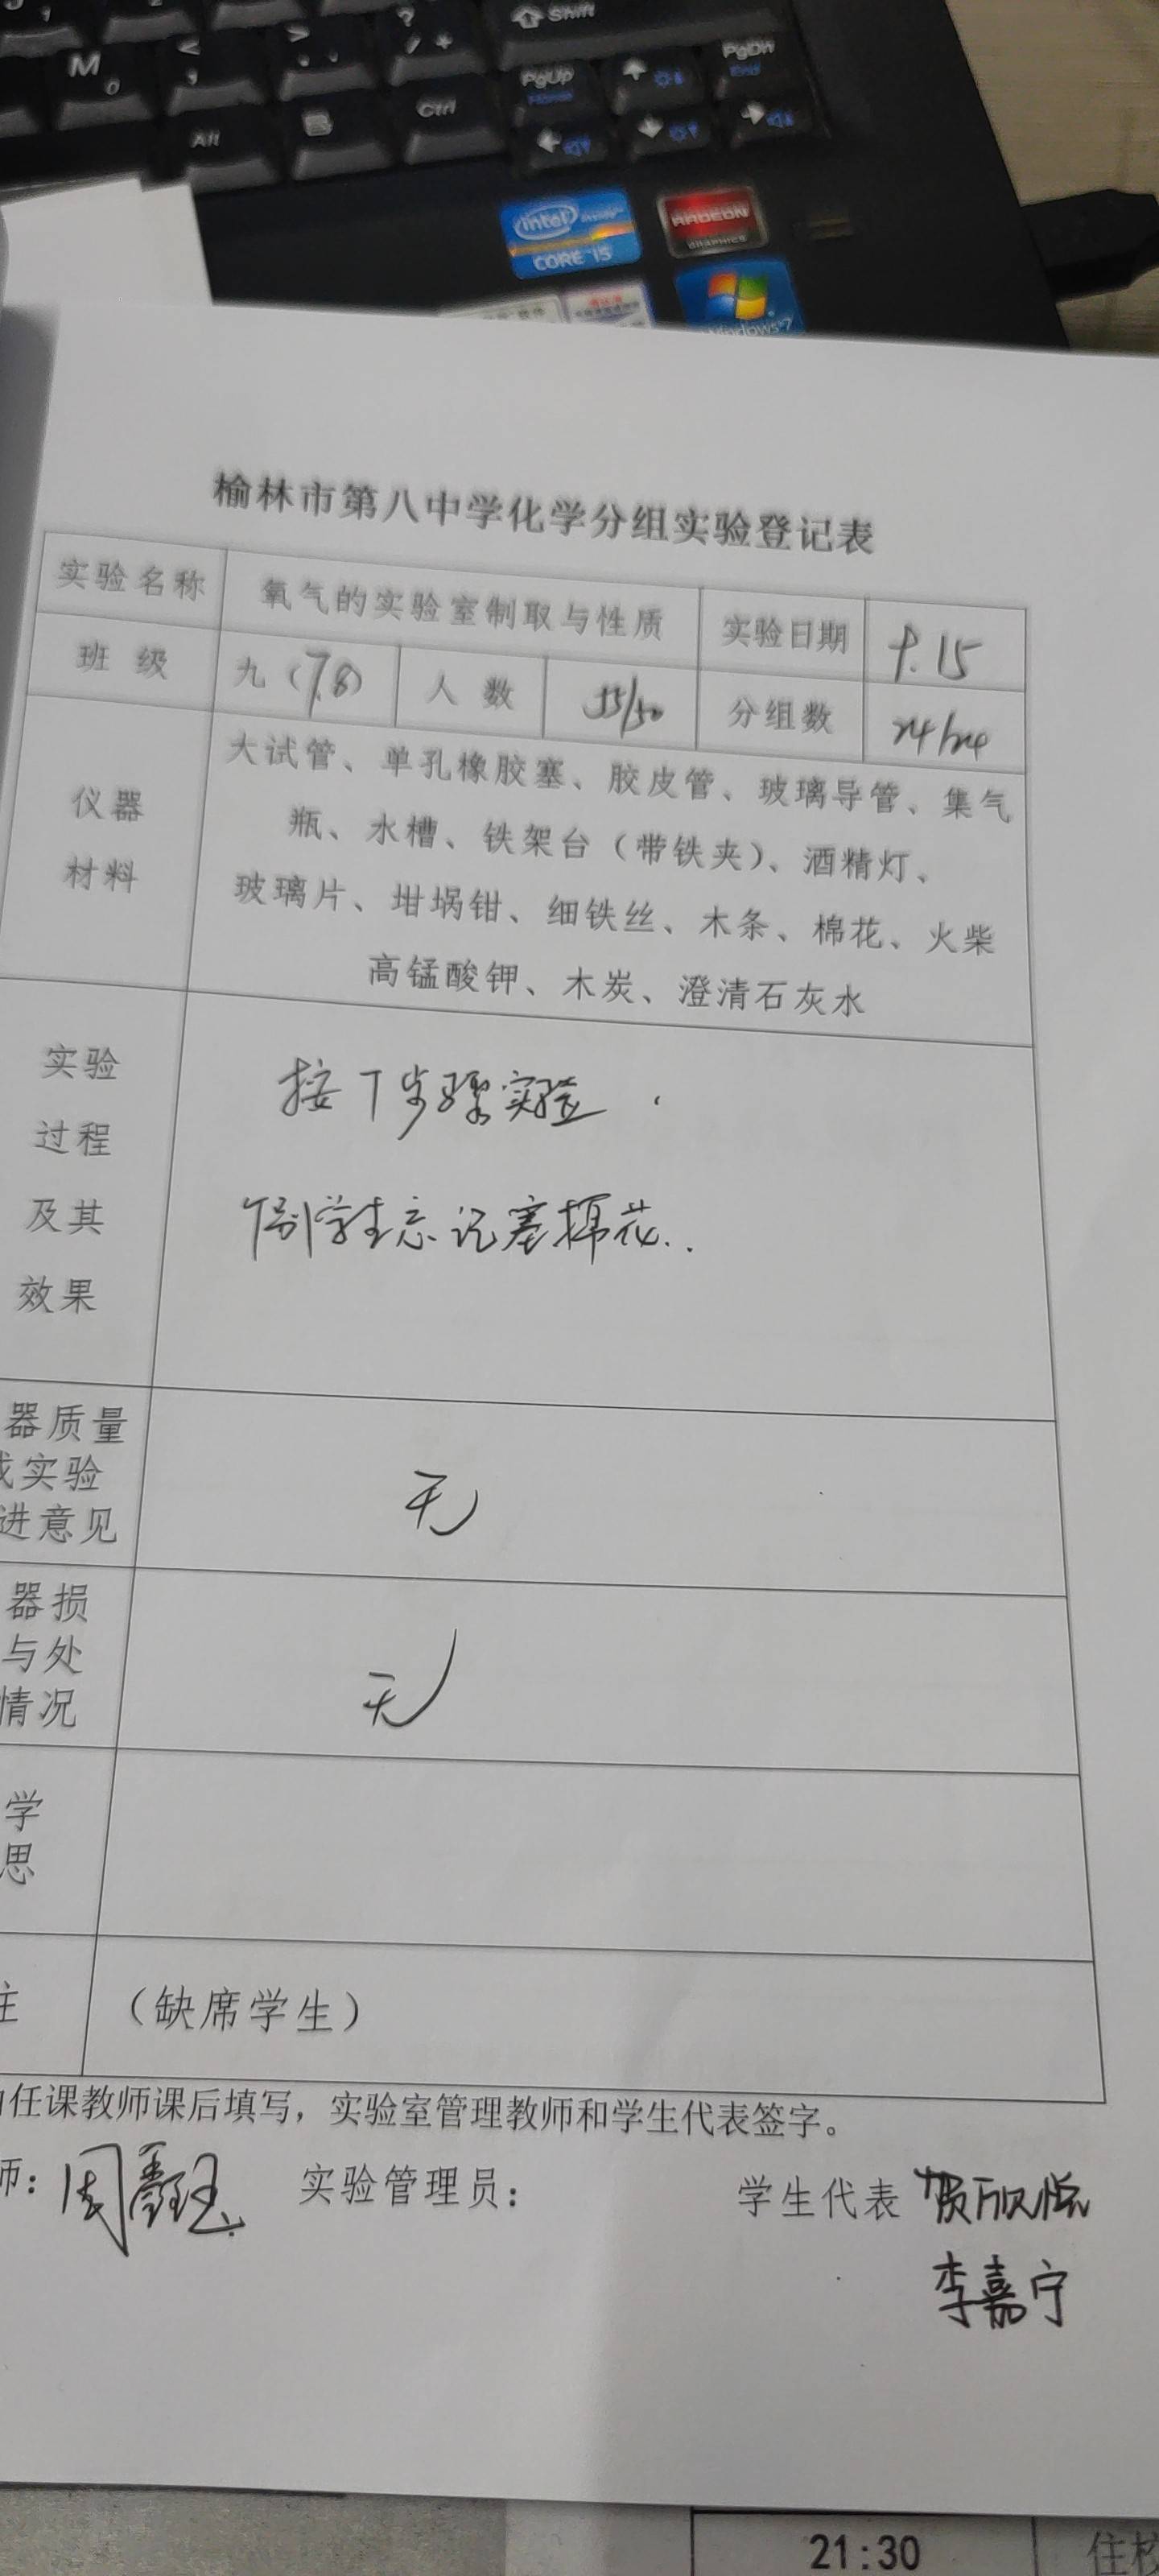 Shift
M
0
Alt
Ctrl
PgUp
Home
PgDn
End
intel inside
CORE i5
RADEON
GRAPHICS
Windows 7
榆林市第八中学化学分组实验登记表
实验名称 氧气的实验室制取与性质 实验日期 9.15
班 级 九(7.8) 人 数 55/50 分组数 24/24
仪器
材料
大试管、单孔橡胶塞、胶皮管、玻璃导管、集气
瓶、水槽、铁架台（带铁夹）、酒精灯、
玻璃片、坩埚钳、细铁丝、木条、棉花、火柴
高锰酸钾、木炭、澄清石灰水
实验
过程
及其
效果
按下步骤实验.
个别学生忘记塞棉花..
器质量
实验
进意见
无
器损
与处
情况
无
学
思
（缺席学生）
任课教师课后填写，实验室管理教师和学生代表签字。
师： 实验管理员： 学生代表 贺欣悦
李嘉宁
21:30